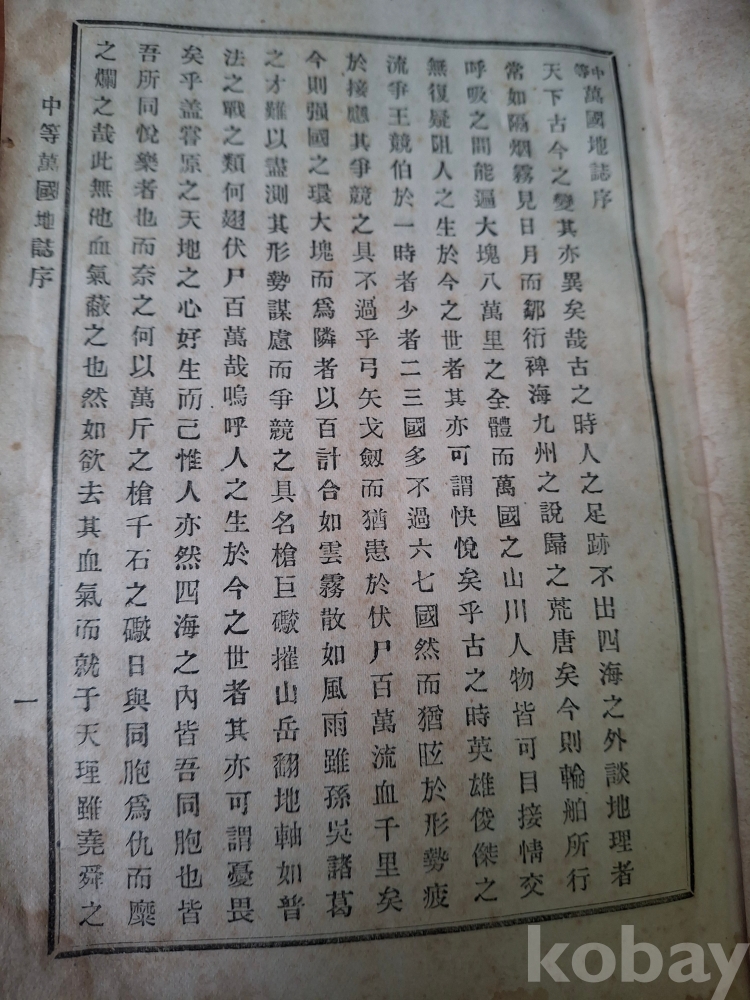 中等萬國地誌序
天下古今之變其亦異矣哉古之時人之足跡不出四海之外談地理者
常如隔烟霧見日月而鄒衍裨海九州之說歸之荒唐矣今則輪舶所行
呼吸之間能遍大塊八萬里之全體而萬國之山川人物皆可目接情交
無復疑阻人之生於今之世者其亦可謂快悅矣乎古之時英雄俊傑之
流爭王競伯於一時者少者二三國多不過六七國然而猶眩於形勢疲
於接應其爭競之具不過乎弓矢戈劒而猶患於伏尸百萬流血千里矣
今則强國之環大塊而爲隣者以百計合如雲霧散如風雨雖孫吳諸葛
之才難以盡測其形勢謀慮而爭競之具名槍巨礮摧山岳翻地軸如普
法之戰之類何翅伏尸百萬哉嗚呼人之生於今之世者其亦可謂憂畏
矣乎盖甞原之天地之心好生而已惟人亦然四海之內皆吾同胞也皆
吾所同悅樂者也而奈之何以萬斤之槍千石之礮日與同胞爲仇而糜
之爛之哉此無他血氣蔽之也然如欲去其血氣而就于天理雖堯舜之
中等萬國地誌序
一
kobay